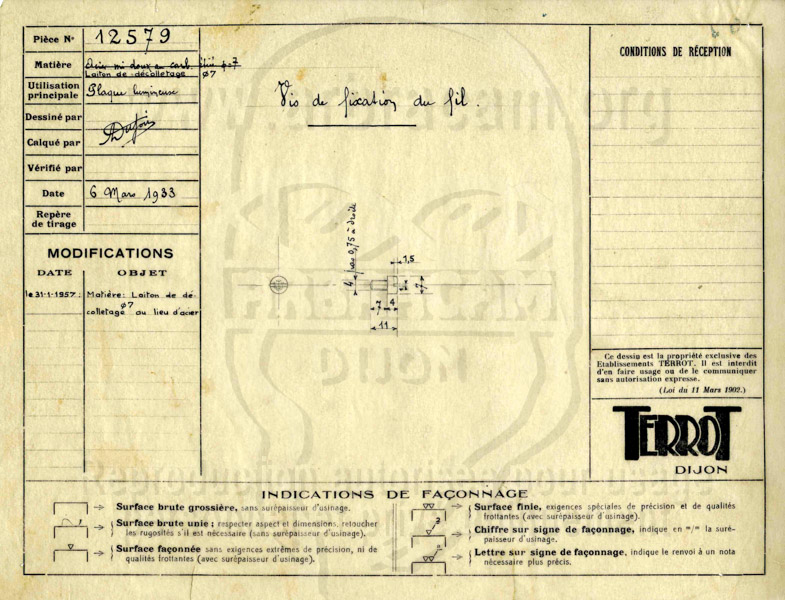 Pièce N° 12579
Matière Acier mi-doux en carb. étiré φ=7
Laiton de décolletage φ7
Utilisation principale Plaque lumineuse
Dessiné par
Calqué par
Vérifié par
Date 6 Mars 1933
Repère de tirage
MODIFICATIONS
DATE OBJET
le 31-1-1957 : Matière: Laiton de dé-
colletage φ7 au lieu d'acier
Vis de fixation du fil.
4 pas 0,75 à droite
1,5
7
7 4
11
CONDITIONS DE RÉCEPTION
Ce dessin est la propriété exclusive des
Etablissements TERROT. Il est interdit
d'en faire usage ou de le communiquer
sans autorisation expresse.
(Loi du 11 Mars 1902.)
TERROT
DIJON
INDICATIONS DE FAÇONNAGE
Surface brute grossière, sans surépaisseur d'usinage.
Surface brute unie : respecter aspect et dimensions, retoucher
les rugosités s'il est nécessaire (sans surépaisseur d'usinage).
Surface façonnée sans exigences extrêmes de précision, ni de
qualités frottantes (avec surépaisseur d'usinage).
Surface finie, exigences spéciales de précision et de qualités
frottantes (avec surépaisseur d'usinage).
Chiffre sur signe de façonnage, indique en m/m la suré-
paisseur d'usinage.
Lettre sur signe de façonnage, indique le renvoi à un nota
nécessaire plus précis.